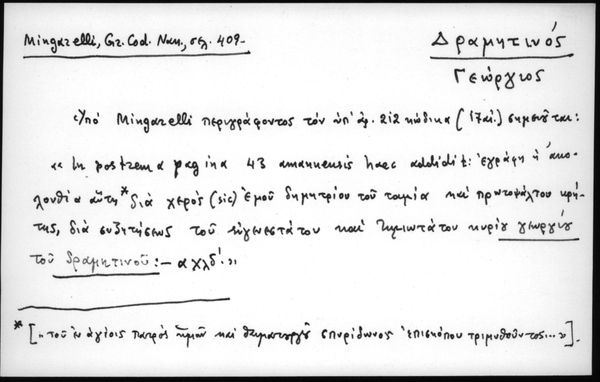 Mingarelli, Gr. Cod. Nan., σελ. 409-
Δραμητινός
Γεώργιος
Ὑπό Mingarelli περιγράφοντος τόν ὑπ' ἀρ. 212 κώδικα (17 αἰ.) σημειοῦται:
«In postrema pagina 43 amanuensis haec addidit: ἐγράφη ἡ ἀκο-
λουθία αὕτη * διά χερός (sic) ἐμοῦ δημητρίου τοῦ ταμία καί πρωτοψάλτου κρή-
της, διά συζητήσεως τοῦ εὐγενεστάτου καί τιμιωτάτου κυρίου γεωργίου
τοῦ δραμητινοῦ:- αχλδ'.»
* [«τοῦ ἐν ἁγίοις πατρός ἡμῶν καί θαυματουργοῦ σπυρίδωνος ἐπισκόπου τριμυθοῦντος...»].